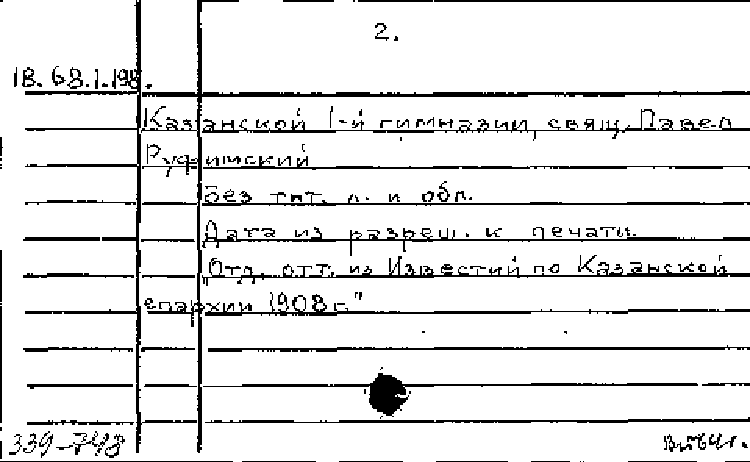 2.
18.68.1.198.
Казанской 1-й гимназии, свящ. Павел
Руфимский
Без тит. л. и обл.
Дата из разреш. к печати.
"Отд. отт. из Известий по Казанской
епархии 1908 г."
339-748